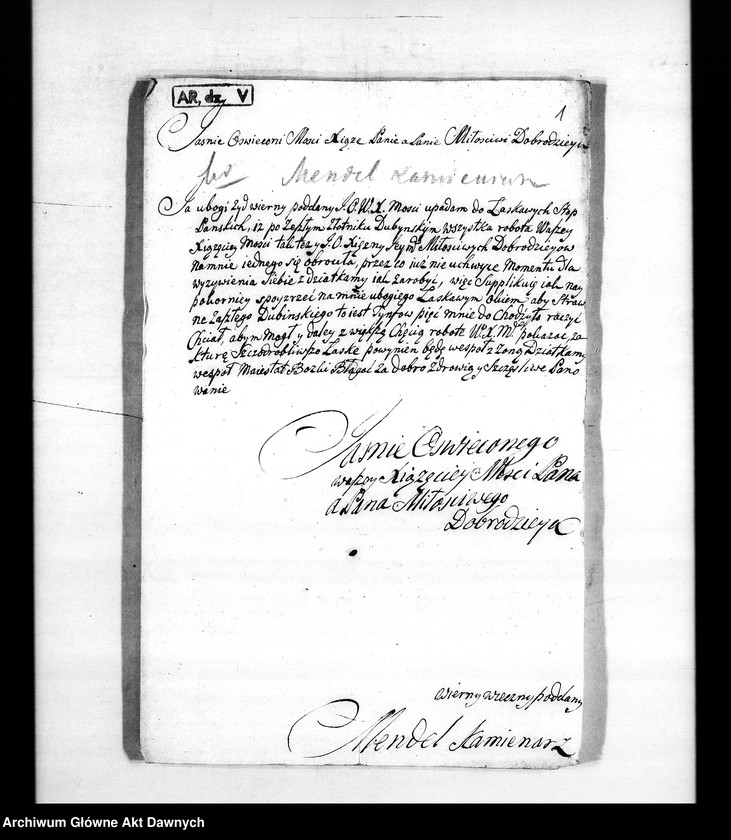 AR, dz V
1
Jasnie Oswieconi Mosci Xiąze Panie a Panie Miłosciwi Dobrodzieyu
Mendel Kamienarz
Ja ubogi Zyd wierny poddany J.O.W.X. Mosci upadam do Łaskawych Stop
Panskich, iz po zeszłym złotniku Dubynskim wszystka robota Waszey
Xiązęcey Mosci takze y J.O. Xięzny Jeymci Miłosciwych Dobrodzieyow
na mnie iednego się obrociła, przez co iuz nie uchwycę Momentu dla
wyzywienia Siebie z dziatkamy iak zarobyć, więc Supplikuię iak nay
pokorniey spoyrzeć na mnie ubogiego Łaskawym Okiem, aby Straw
ne Zaszłego Dubinskiego to iest Tynfow pięć mnie do Chodzyło raczył
Chciał, abym mogł y daley z większą Chęcią robotę W.X.M. pokazac, za
kturę Szczodrobliwszo Łaskę powynien będę wespoł z Zoną Dziatkamy
wespoł Maiestat Bozki Błagać za dobro Zdrowia y Szczęsliwe Pano
wanie
Jasnie Oswieconego
waszey Xiązęcey Mosci Pana
a Pana Miłosciwego
Dobrodzieya
wierny wieczny poddany
Mendel Kamienarz
Archiwum Główne Akt Dawnych